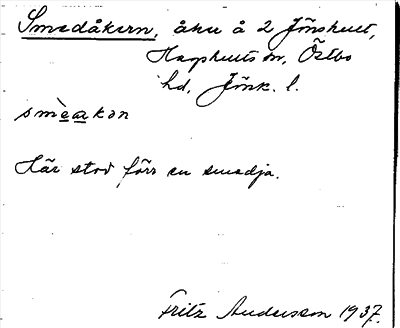 Smedåkern, åker å 2 Jönshult,
Hagshults sn, Östbo
hd, Jönk. l.
smèakən
Här stod förr en smedja.
Fritz Andersson 1937.